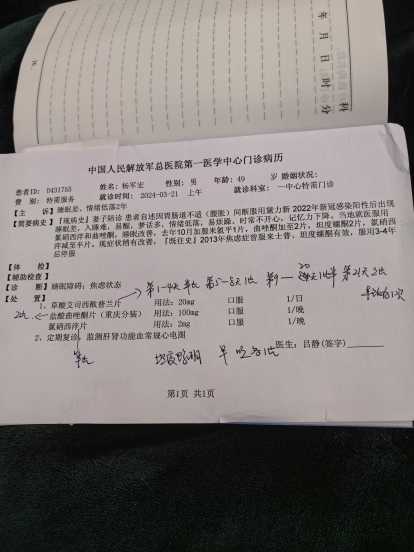 年 月 日 时 分
科
中国人民解放军总医院第一医学中心门诊病历
患者ID: 0431765 姓名: 杨军宏 性别: 男 年龄: 49 岁 婚姻状况:
费 别: 特需服务 就诊时间: 2024-03-21 上午 就诊科室: 一中心特需门诊
【主 诉】睡眠差, 情绪低落2年
【简要病史】【现病史】妻子陪诊 患者自述因胃肠道不适(腹胀)间断服用黛力新 2022年新冠感染阳性后出现
睡眠差, 入睡难, 易醒, 梦话多, 情绪低落, 易烦躁, 时常不开心, 记忆力下降。当地就医服用
氯硝西泮和曲唑酮, 睡眠改善, 去年10月加服米氮平1片, 曲唑酮加至2片, 坦度螺酮2片, 氯硝西
泮减至半片。现症状稍有改善;『既往史』2013年焦虑症曾服来士普, 坦度螺酮有效, 服用3-4年
后停服
【体 检】
【辅助检查】
【诊 断】睡眠障碍; 焦虑状态
【处 置】
1、草酸艾司西酞普兰片 用法: 20mg 口服 1/日
盐酸曲唑酮片(重庆分装) 用法: 100mg 口服 1/晚
氯硝西泮片 用法: 2mg 口服 1/晚
2、定期复诊, 监测肝肾功能血常规心电图
医生: 吕静(签字)
早
第1页 共1页